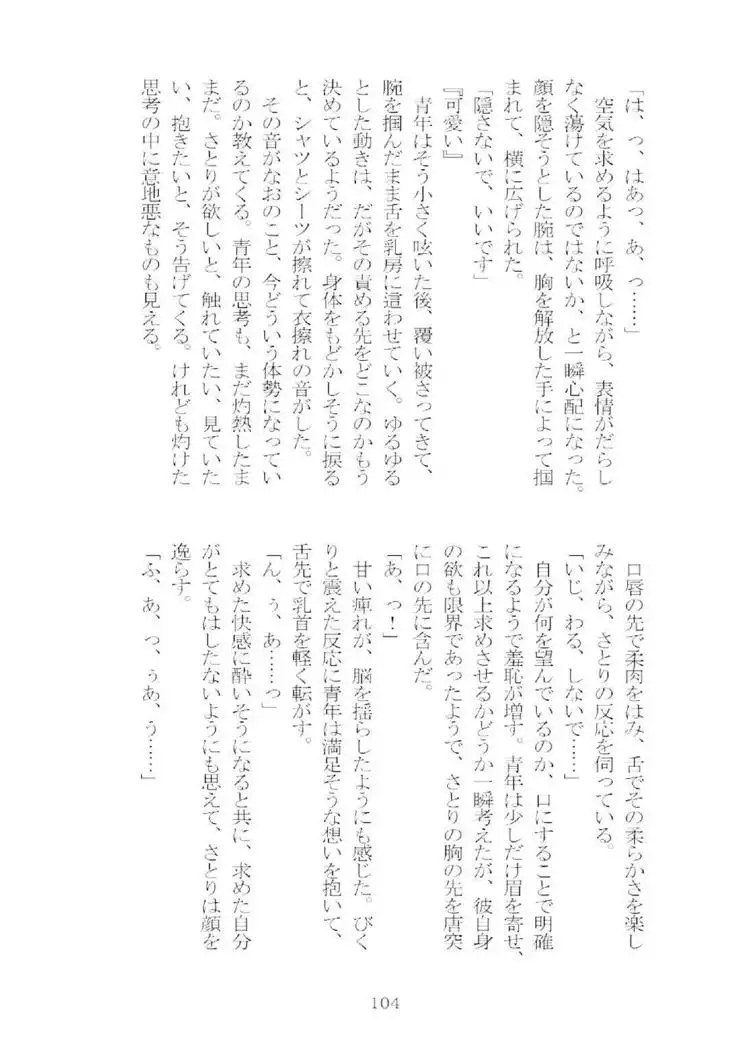 「は、っ、はあっ、あ、っ……」
　空気を求めるように呼吸しながら、表情がだらし
なく蕩けているのではないか、と一瞬心配になった。
顔を隠そうとした腕は、胸を解放した手によって掴
まれて、横に広げられた。
「隠さないで、いいです」
『可愛い』
　青年はそう小さく呟いた後、覆い被さってきて、
腕を掴んだまま舌を乳房に這わせていく。ゆるゆる
とした動きは、だがその責める先をどこなのかもう
決めているようだった。身体をもどかしそうに捩る
と、シャツとシーツが擦れて衣擦れの音がした。
　その音がなおのこと、今どういう体勢になってい
るのか教えてくる。青年の思考も、まだ灼熱したま
まだ。さとりが欲しいと、触れていたい、見ていた
い、抱きたいと、そう告げてくる。けれども灼けた
思考の中に意地悪なものも見える。
　口唇の先で柔肉をはみ、舌でその柔らかさを楽し
みながら、さとりの反応を伺っている。
「いじ、わる、しないで……」
　自分が何を望んでいるのか、口にすることで明確
になるようで羞恥が増す。青年は少しだけ眉を寄せ、
これ以上求めさせるかどうか一瞬考えたが、彼自身
の欲も限界であったようで、さとりの胸の先を唐突
に口の先に含んだ。
「あ、っ！」
　甘い痺れが、脳を揺らしたようにも感じた。びく
りと震えた反応に青年は満足そうな想いを抱いて、
舌先で乳首を軽く転がす。
「ん、ぅ、あ……っ」
　求めた快感に酔いそうになると共に、求めた自分
がとてもはしたないようにも思えて、さとりは顔を
逸らす。
「ふ、あ、っ、ぅあ、う……」
104